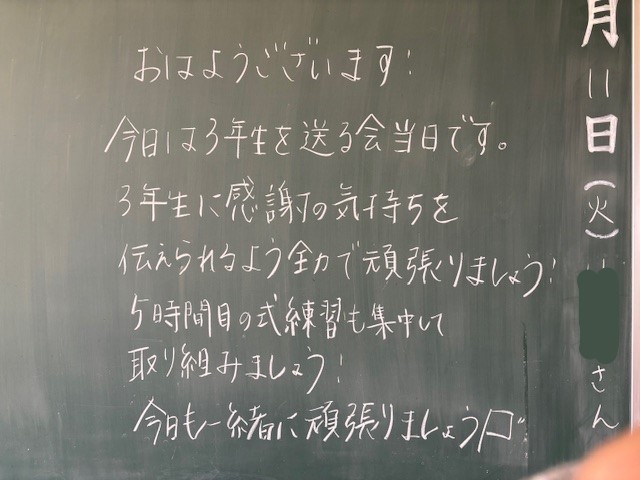 おはようございます!
今日は3年生を送る会当日です。
3年生に感謝の気持ちを
伝えられるよう全力で頑張りましょう!
5時間目の式練習も集中して
取り組みましょう!
今日も一緒に頑張りましょう
月11日(火)
さん